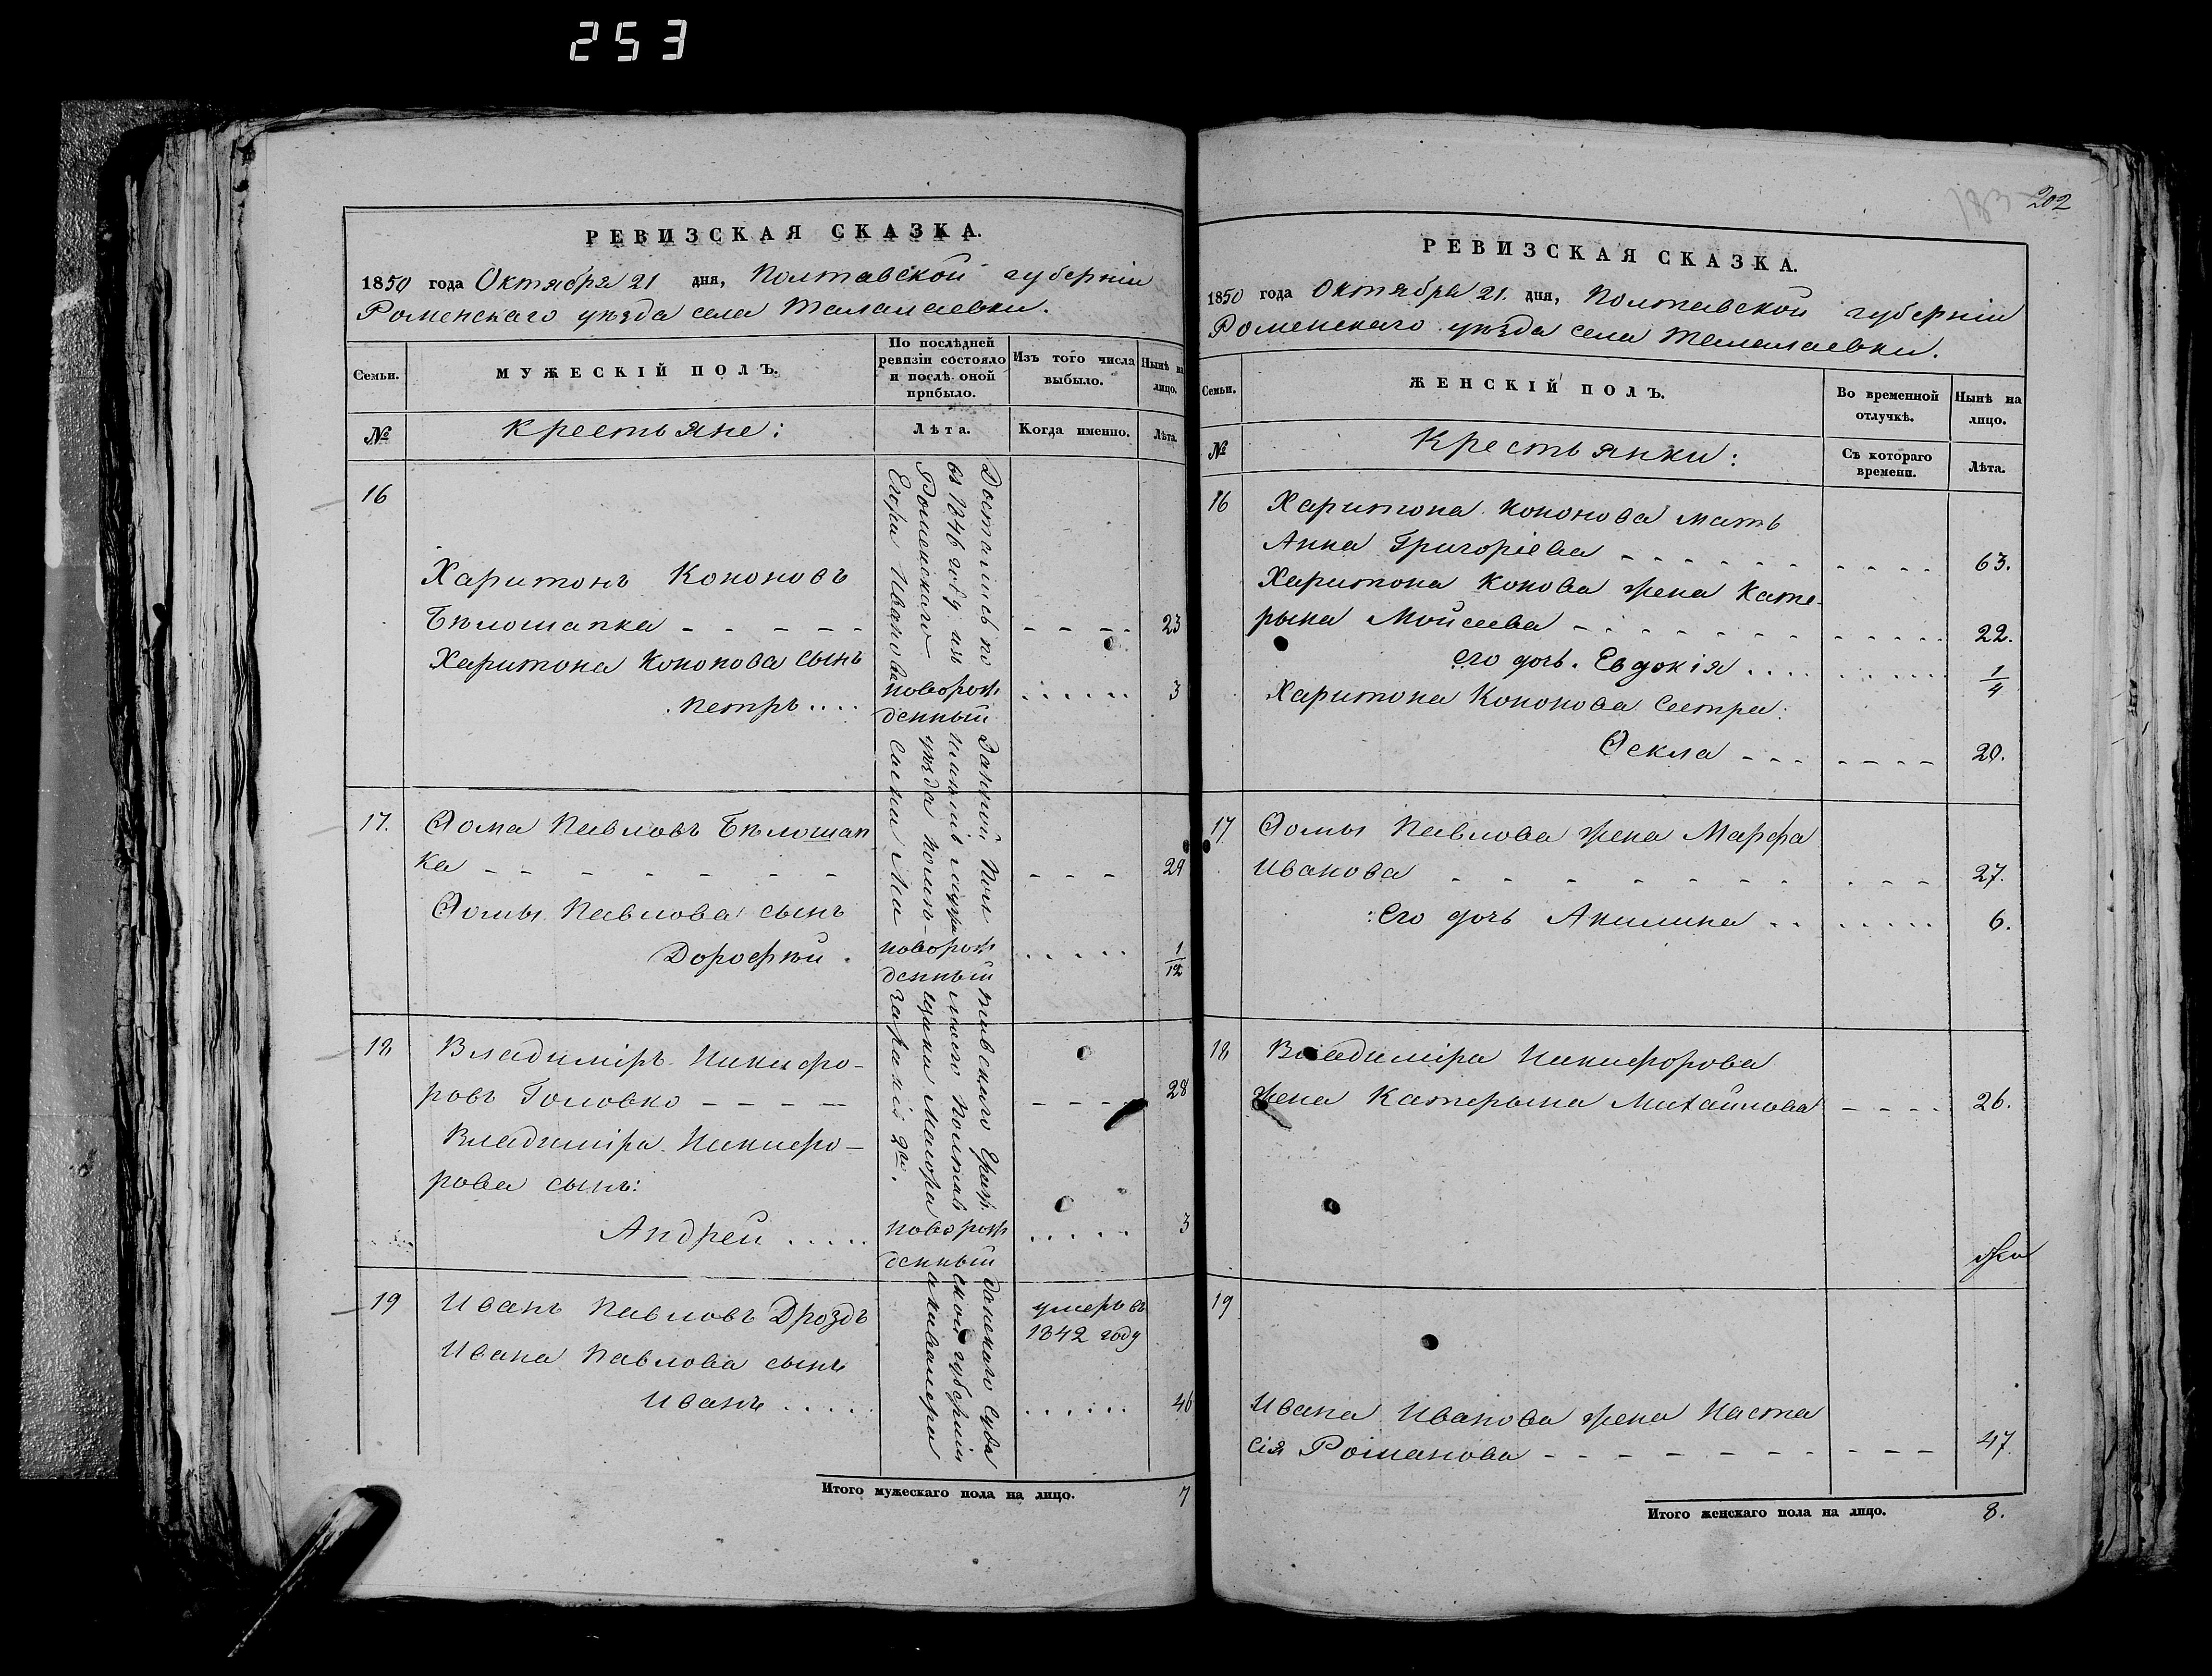 253
РЕВИЗСКАЯ СКАЗКА.
1850 года Октября 21 дня, Полтавской губерніи
Роменскаго уѣзда села Талалаевки.
Семьи.
МУЖЕСКІЙ ПОЛЪ.
По послѣдней
ревизіи состояло
и послѣ оной
прибыло.
Изъ того числа
выбыло.
Нынѣ на
лицо.
№
Крестьяне:
Лѣта.
Когда именно.
Лѣта.
Достались по Данной Полтавскаго Гражданскаго Суда
въ 1846 году изъ имѣнія
Роменскаго уѣзда помѣщика Маіора
16
Харитонъ Кононовъ
Бѣлошапка – – – – – – – – – 23
Харитона Кононова сынъ
Петръ .... новорож
денный ...... 3
17. Фома Павловъ Бѣлошап
ка – – – – – – – – – – 29
Ѳомы Павлова сынъ
Дорофѣй . новорож
денный ..... 1/12
18 Владиміръ Никифо-
ровъ Головко – – – – – – – – 28
Владиміра Никифо-
рова сынъ:
Андрей ..... новорож
денный ..... 3
19 Иванъ Павловъ Дроздъ умеръ въ
1842 году
Ивана Павлова сынъ
Иванъ ..... ...... 46
Итого мужескаго пола на лицо. 7
202
183
РЕВИЗСКАЯ СКАЗКА.
1850 года Октября 21. дня, Полтавской губерніи
Роменскаго уѣзда села Талалаевки.
Семьи.
ЖЕНСКІЙ ПОЛЪ.
Во временной
отлучкѣ.
Нынѣ на
лицо.
№
Крестьянки:
Съ котораго
времени.
Лѣта.
16 Харитона Кононова мать
Анна Григоріева – – – – – – – – 63.
Харитона Конова жена Кате-
рына Мойсеева – – – – – – – – 22.
его дочь. Евдокія .... ...... 1/4
Харитона Кононова Сестра:
Ѳекла – – – – – – – 20.
17 Ѳомы Павлова жена Марфа
Иванова – – – – – – – – – – 27.
Его дочь Акилина .. ..... 6.
18 Владиміра Никифорова
жена Катерына Михайлова – – – – 26.
19
Ивана Иванова жена Наста
сія Романова – – – – – – – – – 47.
Итого женскаго пола на лицо. 8.